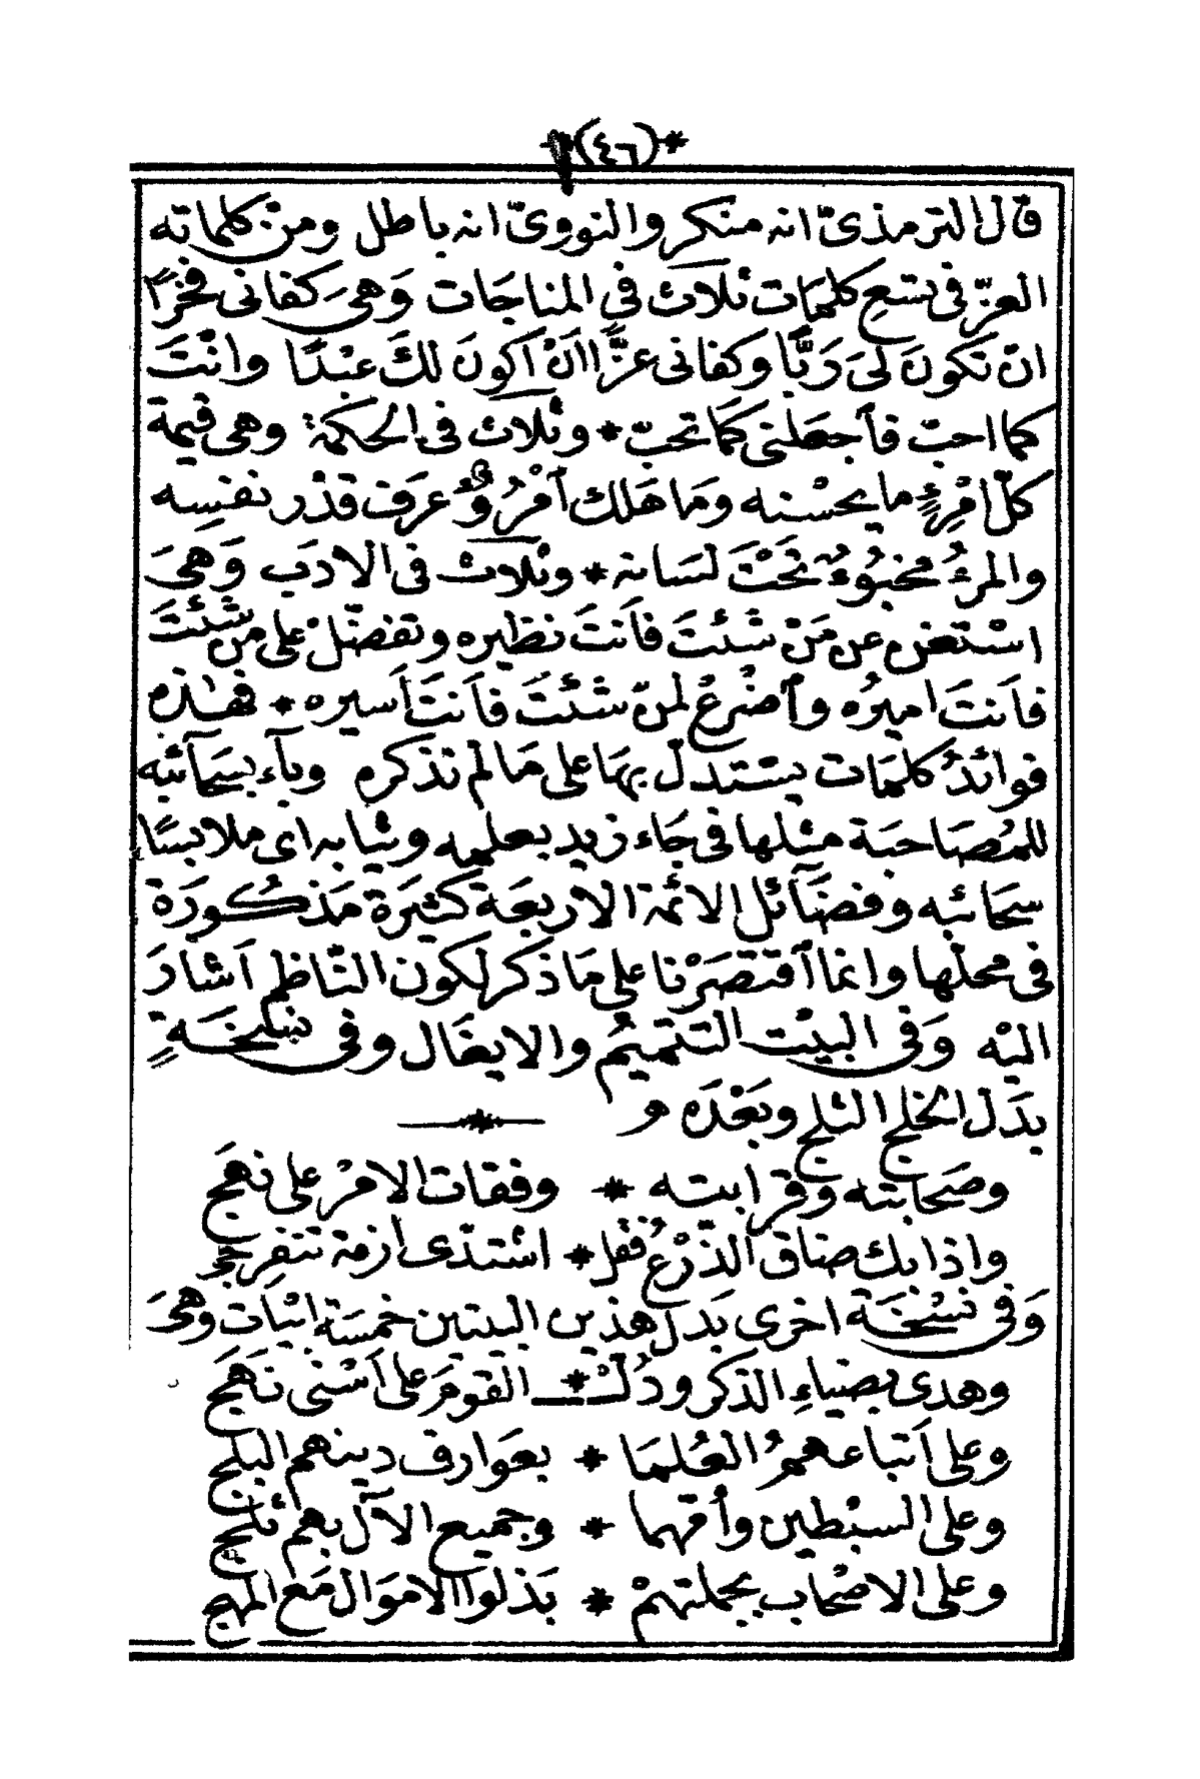 *(٤٦)*
قال الترمذىّ انه منكر والنووىّ انه باطل ومن كلماته
العزّ فى تسع كلمات ثلاث فى المناجات وَهىَ كفانى فخرًا
انْ تكونَ لىَ رَبًّا وكفانى عزًّا اانْ اكونَ لكَ عبْدًا وانْتَ
كما احبّ فاجعلنى كما تحبّ * وثلاث فى الحكمة وهى قيمة
كلّ امْرِءٍ ما يحسْنه وَما هَلك امْرُؤٌ عَرَف قدْر نفسِه
والمرءُ مخبُوءٌ تحْتَ لسَانه * وثلاث فى الادَب وَهىَ
اسْتغن عن مَنْ شئتَ فاَنتَ نظيره وتفضّلْ على منْ شئتَ
فاَنتَ اميرُه واضْرعْ لمنّ شئتَ فاَنتَ اَسيره * فهٰذه
فوائدُ كلمَات يستدلّ بهَا على مَا لم تذكره وباء بسَمآئبه
للمُصَاحبَة مثلها فى جَاء زيد بعلمه وثيابه اى ملابسًا
سحائبه وفضَآئل الائمة الاربعَة كثيرَة مَذكُورَة
فى محلها وانما اقتصَرْنا على مَا ذكر لكون النّاظم اَشارَ
اليْه وَفى البيْت التتميْم والايغَال وفى نسْخَةٍ
بدَل الخلج الثلج وبَعْدَه
وصَحابته وقرابته * وقفات الامْر على نهَج
واذا بك ضاق الذّرْعُ فقُل * اشتدّى ازمة تنفرِجى
وَفى نسْخَة اخرى بَدلَ هذين البيتين خمسَة ابْيَات وَهىَ
وهدى بضياءِ الذكر ودُلّْ * القومَ على اَسْنى نَهَج
وعلى اَتباعهمُ العُلمَا * بعَوارف دينهم البلج
وعلى السبْطين وأمّهما * وجميع الآل بهم تلج
وعلى الاصْحاب بجملتهمْ * بَذلوا الامَوَال مَع المهج